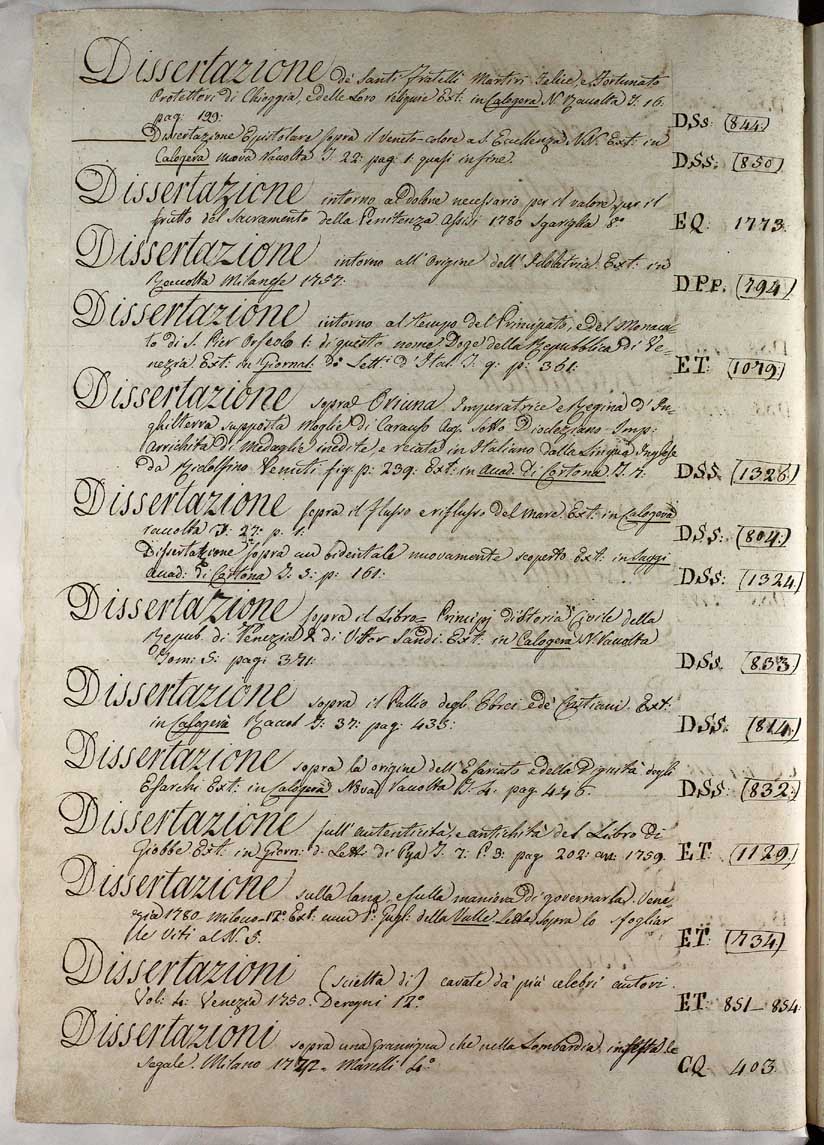 Dissertazione de' Santi fratelli Martiri Felice, e Fortunato
Protettori di Chioggia, e delle Loro reliquie Ext: in Calogerà N. Raccolta T. 16.
pag: 129: DSs: (844.)
Dissertazione Epistolare sopra il Veneto-colore a S. Eccellenza N.N. Ext: in
Calogerà nuova raccolta T. 22: pag: 1: quasi in fine. DSS: (850)
Dissertazione intorno al Dolore necessario per il valore, per il
frutto del Sacramento della Penitenza Assisi 1780 Sgariglia 8° EQ: 1773.
Dissertazione intorno all'Origine dell'Idolatria. Ext: in
Raccolta Milanese 1757. DPp. (794)
Dissertazione intorno al tempo del Principato, e del Monaca-
to di S. Pier Orseolo 1: di questo nome Doge della Repubblica di Ve-
nezia Ext: in Giornal: de Lett: d'Ital: T. 9: p: 361: ET: (1079.)
Dissertazione sopra Oriuna Imperatrice e Regina d'In-
ghilterra supposta Moglie di Carausio Aug. sotto Diocleziano Imp:
Arrichita di Medaglie inedite, e recata in Italiano dalla Lingua Inglese
da Ridolfino Venuti fig: p: 239: Ext: in Accad: di Cortona T. DSS: (1326.)
Dissertazione sopra il flusso e riflusso del mare. Ext: in Calogerà
raccolta T: 27: p: 1: DSS: (804:)
Dissertazione sopra un bidentale nuovamente scoperto Ext: in Saggi
Accad: di Cortona T: 5: p: 161: DSS: (1324.)
Dissertazione sopra il Libro= Principj di Storia Civile della
Repub. di Venezia & di Vittor Sandi. Ext: in Calogerà N. Raccolta
Tom: 5: pag: 371: DSs: (833)
Dissertazione sopra il Pallio degli Ebrei e de' Cristiani. Ext:
in Calogerà Raccol T: 37: pag: 435: DSS: (814:)
Dissertazione sopra la origine dell'Esarcato e della Dignità degli
Esarchi Ext: in Calogerà Nova Raccolta T: 4. pag: 446. DSS: (832:)
Dissertazione sull'autenticità, e antichità del Libro di
Giobbe Ext: in Giorn: d: Lett: di Pisa T. 7: P. 3: pag: 202: an: 1759. ET: (1129.)
Dissertazione sulla lana, e sulla maniera di governarla. Vene
zia 1780 12° Ext: della Valle Lettª sopra lo sfogliar
le Viti al N. 5. ET: (734)
Dissertazioni (scielta di) cavate da' più celebri autori.
Vol: 4: Venezia 1750. Deregni 12° ET: 851_854.
Dissertazioni sopra una gramigna che nella Lombardia, infesta le
segale. Milano 1772. Marelli 4° CQ 403.